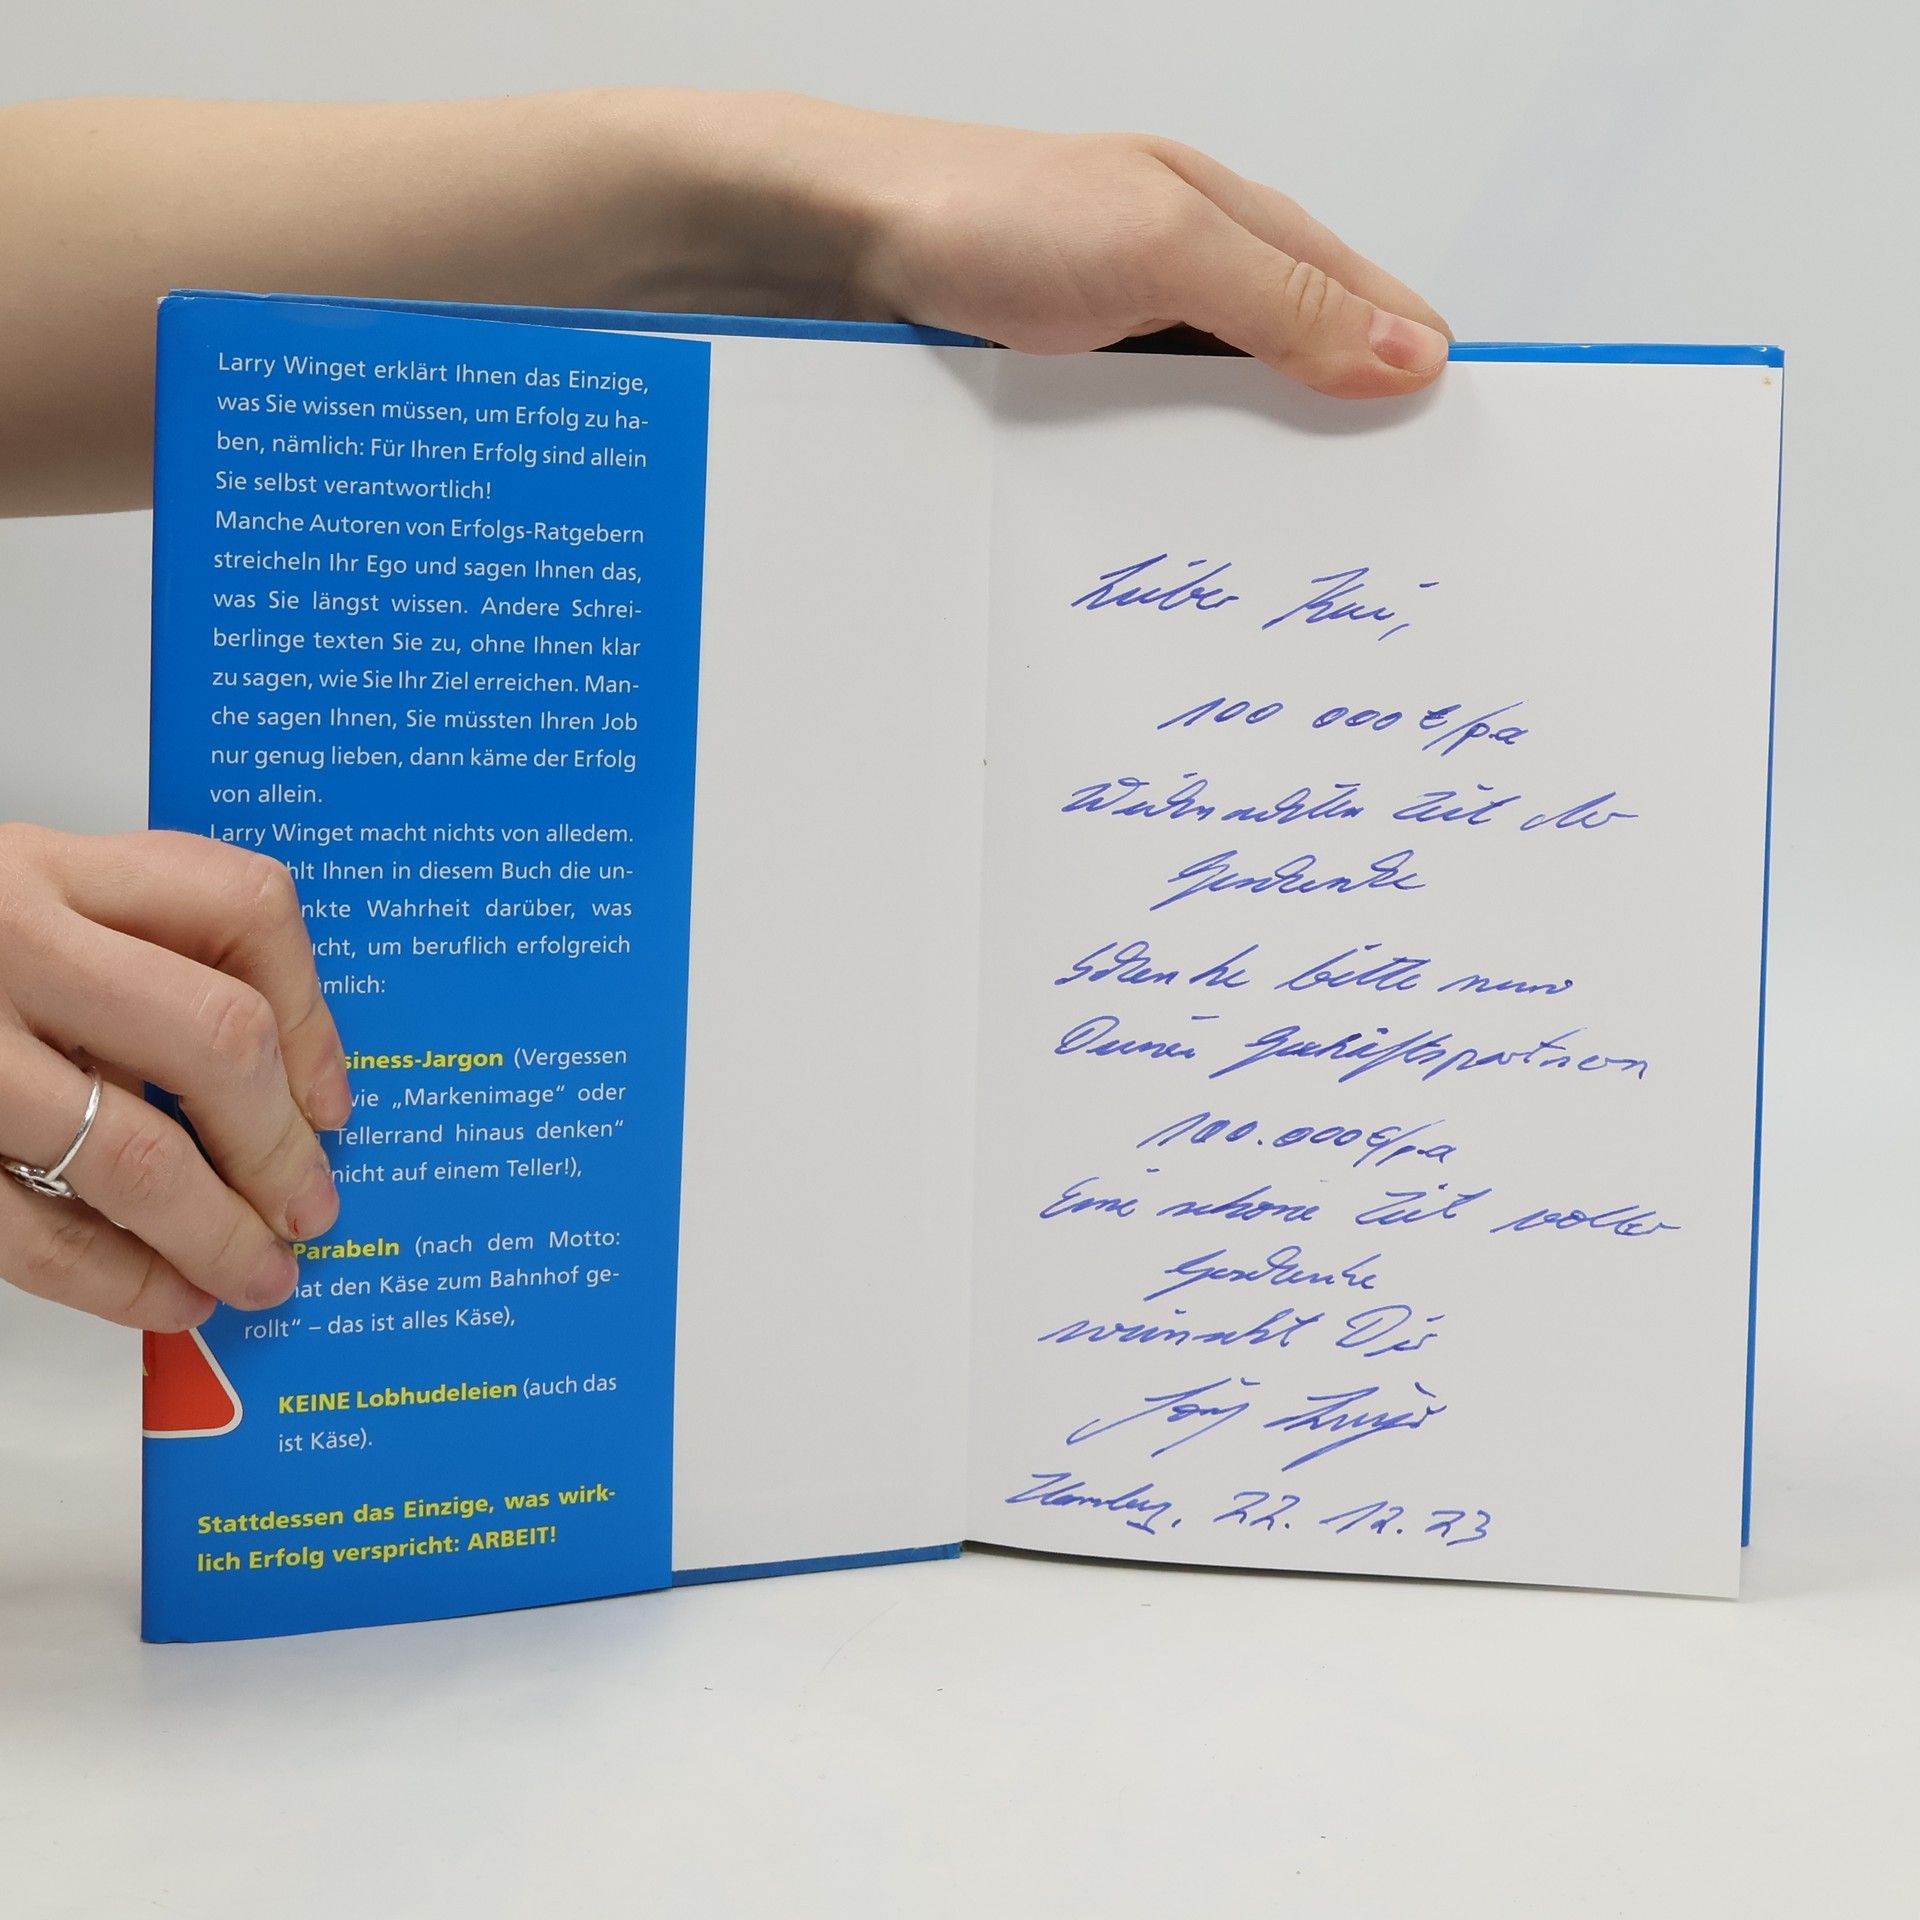 Larry Winget erklärt Ihnen das Einzige,
was Sie wissen müssen, um Erfolg zu ha-
ben, nämlich: Für Ihren Erfolg sind allein
Sie selbst verantwortlich!
Manche Autoren von Erfolgs-Ratgebern
streicheln Ihr Ego und sagen Ihnen das,
was Sie längst wissen. Andere Schrei-
berlinge texten Sie zu, ohne Ihnen klar
zu sagen, wie Sie Ihr Ziel erreichen. Man-
che sagen Ihnen, Sie müssten Ihren Job
nur genug lieben, dann käme der Erfolg
von allein.
Larry Winget macht nichts von alledem.
hlt Ihnen in diesem Buch die un-
nkte Wahrheit darüber, was
ucht, um beruflich erfolgreich
mlich:
siness-Jargon (Vergessen
wie „Markenimage“ oder
Tellerrand hinaus denken“
nicht auf einem Teller!),
Parabeln (nach dem Motto:
hat den Käse zum Bahnhof ge-
rollt“ – das ist alles Käse),
KEINE Lobhudeleien (auch das
ist Käse).
Stattdessen das Einzige, was wirk-
lich Erfolg verspricht: ARBEIT!
Lieber Kai,
100 000 €/pa
Weihnachten Zeit der
Geschenke
Schenke bitte nur
Deinen Geschäftspartnern
100.000€/pa
Eine schöne Zeit voller
Geschenke
wünscht Dir
Hamburg, 22.12.23